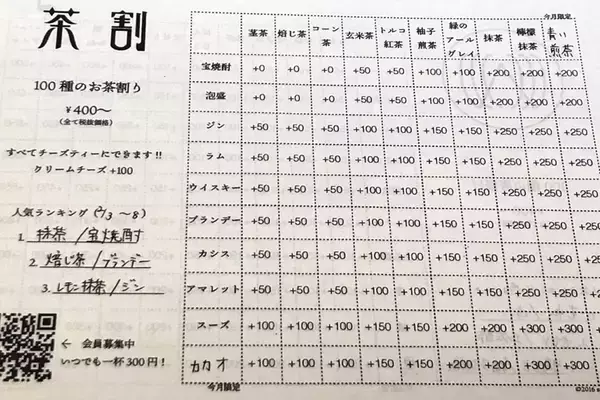 茶割
100種のお茶割り
¥400～
(全て税抜価格)
すべてチーズティーにできます!!
クリームチーズ+100
人気ランキング(2/3 ～8)
1. 抹茶/宝焼酎
2. 焙じ茶/ブランデー
3. レモン抹茶/ジン
← 会員募集中
いつでも一杯300円!
今月限定
茎茶 焙じ茶 コーン茶 玄米茶 トルコ紅茶 柚子煎茶 緑のアールグレイ 抹茶 檸檬抹茶 青い煎茶
宝焼酎 +0 +0 +0 +50 +50 +100 +100 +200 +200 +200
泡盛 +0 +0 +0 +50 +50 +100 +100 +200 +200 +200
ジン +50 +50 +50 +100 +100 +150 +150 +250 +250 +250
ラム +50 +50 +50 +100 +100 +150 +150 +250 +250 +250
ウイスキー +50 +50 +50 +100 +100 +150 +150 +250 +250 +250
ブランデー +50 +50 +50 +100 +100 +150 +150 +250 +250 +250
カシス +50 +50 +50 +100 +100 +150 +150 +250 +250 +250
アマレット +50 +50 +50 +100 +100 +150 +150 +250 +250 +250
スーズ +100 +100 +100 +150 +150 +200 +200 +300 +300
カカオ +100 +100 +100 +150 +150 +200 +200 +300 +300
今月限定
©2016